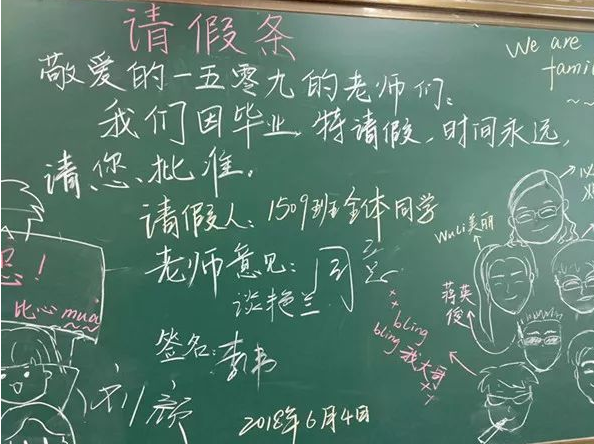 请假条
敬爱的一五零九的老师们：
我们因毕业，特请假，时间永远，
请您批准。
请假人：1509班全体同学
老师意见：同意
谈艳兰
签名：李书
刘颜
2018年6月4日
We are
famil
~~
Wuli美丽
蒋英俊
××
bling
bling 我大哥
！
比心 mua
~~